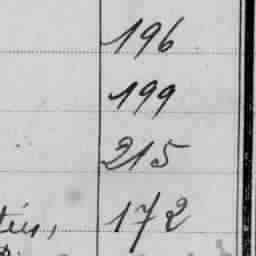 196
199
215
172